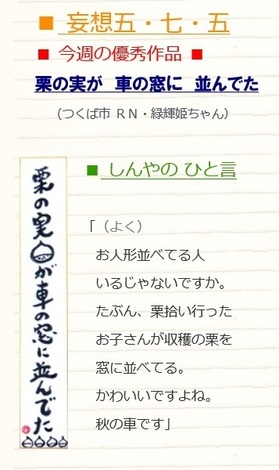 ■ 妄想五・七・五
■ 今週の優秀作品 ■
栗の実が 車の窓に 並んでた
（つくば市 ＲＮ・緑輝姫ちゃん）
栗の実が車の窓に並んでた
■ しんやの ひと言
「（よく）
お人形並べてる人
いるじゃないですか。
たぶん、栗拾い行った
お子さんが収穫の栗を
窓に並べてる。
かわいいですよね。
秋の車です」